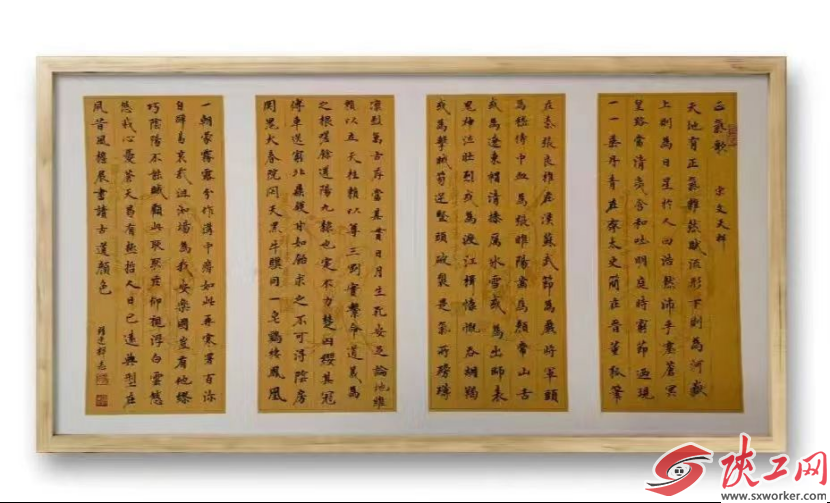 正氣歌 宋 文天祥
天地有正氣雜然賦流形下則為河嶽
上則為日星於人曰浩然沛乎塞蒼冥
皇路當清夷含和吐明庭時窮節乃現
一一垂丹青在齊太史簡在晉董狐筆
在秦張良椎在漢蘇武節為嚴將軍頭
為嵇侍中血為張睢陽齒為顏常山舌
或為遼東帽清操厲冰雪或為出師表
鬼神泣壯烈或為渡江楫慷慨吞胡羯
或為擊賊笏逆豎頭破裂是氣所磅礴
凜烈萬古存當其貫日月生死安足論地維
賴以立天柱賴以尊三綱實繫命道義為
之根嗟余遘陽九隸也實不力楚囚纓其冠
傳車送窮北鼎鑊甘如飴求之不可得陰房
闃鬼火春院閟天黑牛驥同一皂雞棲鳳凰
一朝蒙霧露分作溝中瘠如此再寒暑百沴
自辟易哀哉沮洳場為我安樂國豈有他繆
巧陰陽不能賊顧此耿耿在仰視浮白雲悠
悠我心憂蒼天曷有極哲人日已遠典型在
夙昔風檐展書讀古道顏色
陕工网
www.sxworker.com